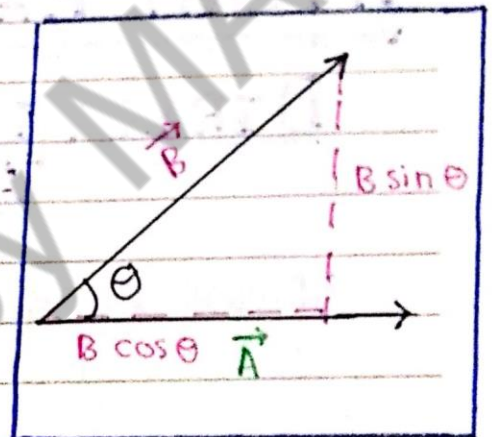 B⃗
B sin θ
θ
B cos θ
A⃗